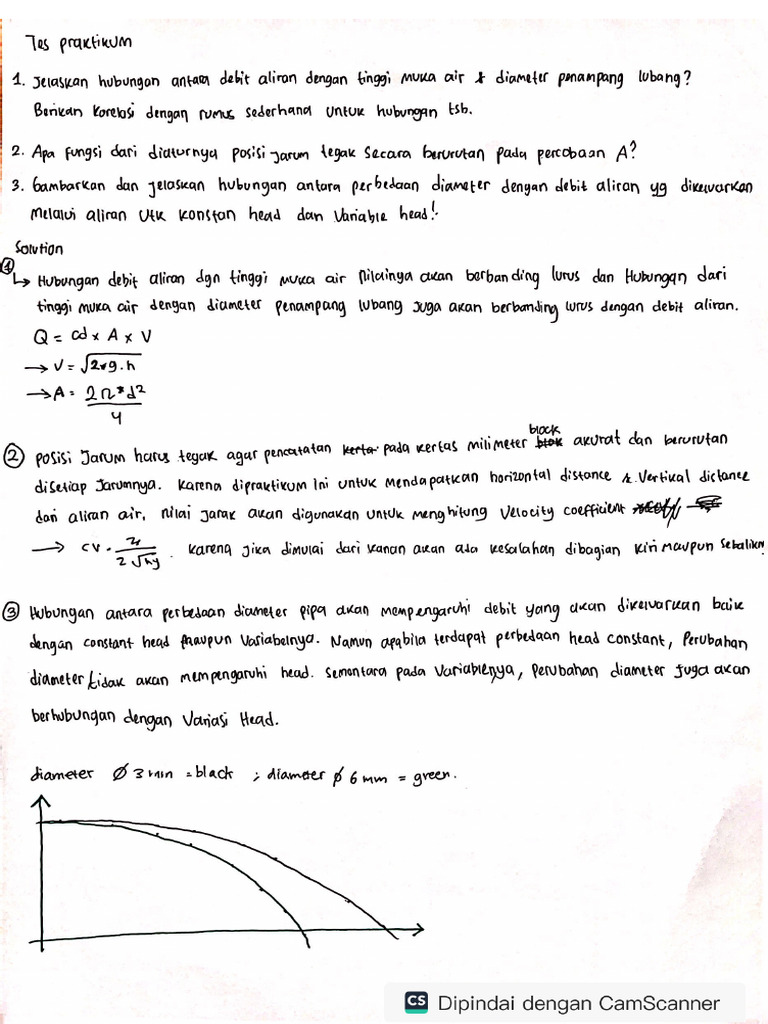 Tes praktikum
1. Jelaskan hubungan antara debit aliran dengan tinggi muka air & diameter penampang lubang?
Berikan korelasi dengan rumus sederhana untuk hubungan tsb.
2. Apa fungsi dari diaturnya posisi jarum tegak secara berurutan pada percobaan A?
3. Gambarkan dan jelaskan hubungan antara perbedaan diameter dengan debit aliran yg dikeluarkan
melalui aliran utk konstan head dan variable head!
Solution
1
↳ Hubungan debit aliran dgn tinggi muka air nilainya akan berbanding lurus dan Hubungan dari
tinggi muka air dengan diameter penampang lubang juga akan berbanding lurus dengan debit aliran.
Q = cd x A x V
→ V = √2*g.h
→ A = 2π*d²/4
2 posisi Jarum harus tegak agar pencatatan pada kertas milimeter block akurat dan berurutan
disetiap Jarumnya. Karena dipraktikum ini untuk mendapatkan horizontal distance & Vertikal distance
dari aliran air, nilai jarak akan digunakan untuk menghitung Velocity coefficient
→ cv = /2√hy . karena jika dimulai dari kanan akan ada kesalahan dibagian kiri maupun sebalikn
3 Hubungan antara perbedaan diameter pipa akan mempengaruhi debit yang akan dikeluarkan baik
dengan constant head maupun Variabelnya. Namun apabila terdapat perbedaan head constant, Perubahan
diameter tidak akan mempengaruhi head. Sementara pada Variablenya, Perubahan diameter juga akan
berhubungan dengan Variasi Head.
diameter ∅ 3 mm = black ; diameter ∅ 6 mm = green.
CS Dipindai dengan CamScanner